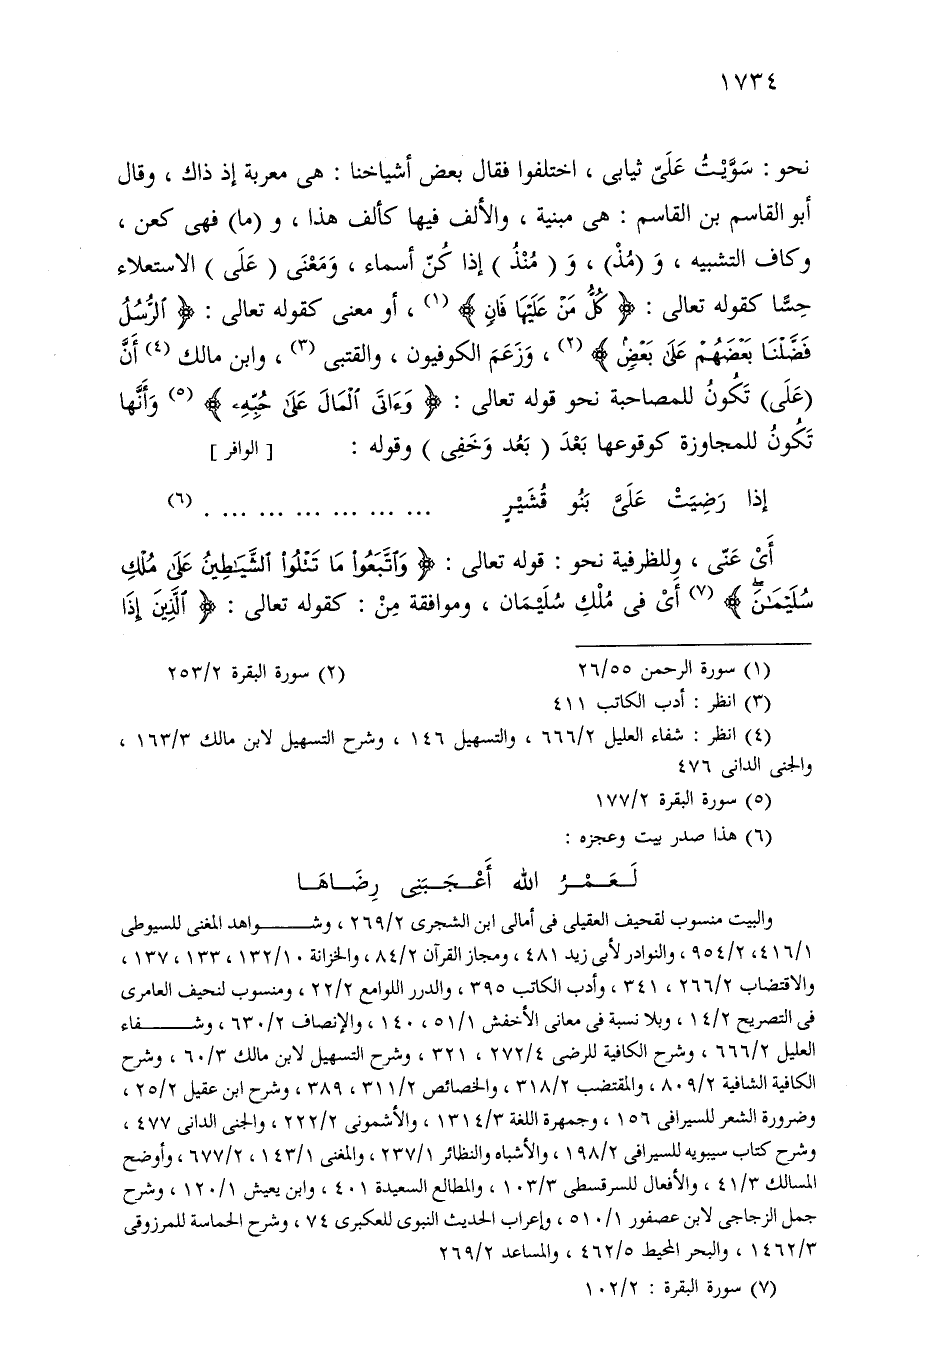 ١٧٣٤
نحو : سَوَّيْتُ عَلَىّ ثيابى ، اختلفوا فقال بعض أشياخنا : هى معربة إذ ذاك ، وقال
أبو القاسم بن القاسم : هى مبنية ، والألف فيها كألف هذا ، و (ما) فهى كعن ،
وكاف التشبيه ، وَ (مُذْ) ، وَ ( مُنْذُ ) إذا كُنّ أسماء ، وَمَعْنَى ( عَلَى ) الاستعلاء
حِسًّا كقوله تعالى : ﴿ كُلُّ مَنْ عَلَيْهَا فَانٍ ﴾ (١) ، أو معنى كقوله تعالى : ﴿ الرُّسُلُ
فَضَّلْنَا بَعْضَهُمْ عَلَىٰ بَعْضٍ ﴾ (٢) ، وَزَعَمَ الكوفيون ، والقتبى (٣) ، وابن مالك (٤) أَنَّ
(عَلَى) تَكُونُ للمصاحبة نحو قوله تعالى : ﴿ وَءَاتَى ٱلْمَالَ عَلَىٰ حُبِّهِۦ ﴾ (٥) وَأَنَّها
تَكُونُ للمجاوزة كوقوعها بَعْدَ ( بَعُد وَخَفِى ) وقوله : [ الوافر ]
إذا رَضِيَتْ عَلَىَّ بَنُو قُشَيْرٍ ... ... ... ... ... ... . (٦)
أَىْ عَنّى ، وللظرفية نحو : قوله تعالى : ﴿ وَٱتَّبَعُوا۟ مَا تَتْلُوا۟ ٱلشَّيَـٰطِينُ عَلَىٰ مُلْكِ
سُلَيْمَـٰنَ ۖ ﴾ (٧) أَىْ فى مُلْكِ سُلَيْمَان ، وموافقة مِنْ : كقوله تعالى : ﴿ ٱلَّذِينَ إِذَا
(١) سورة الرحمن ٢٦/٥٥ (٢) سورة البقرة ٢٥٣/٢
(٣) انظر : أدب الكاتب ٤١١
(٤) انظر : شفاء العليل ٦٦٦/٢ ، والتسهيل ١٤٦ ، وشرح التسهيل لابن مالك ١٦٣/٣ ،
والجنى الدانى ٤٧٦
(٥) سورة البقرة ١٧٧/٢
(٦) هذا صدر بيت وعجزه :
لَـعَـمْـرُ الله أَعْـجَـبَنِى رِضَـاهَـا
والبيت منسوب لقحيف العقيلى فى أمالى ابن الشجرى ٢٦٩/٢ ، وشـــواهد المغنى للسيوطى
٤١٦/١، ٩٥٤/٢ ، والنوادر لأبى زيد ٤٨١ ، ومجاز القرآن ٨٤/٢ ، والخزانة ١٣٢/١٠ ، ١٣٣ ، ١٣٧ ،
والاقتضاب ٢٦٦/٢ ، ٣٤١ ، وأدب الكاتب ٣٩٥ ، والدرر اللوامع ٢٢/٢ ، ومنسوب لنحيف العامرى
فى التصريح ١٤/٢ ، وبلا نسبة فى معانى الأخفش ٥١/١ ، ١٤٠ ، والإنصاف ٦٣٠/٢ ، وشـــفاء
العليل ٦٦٦/٢ ، وشرح الكافية للرضى ٢٧٢/٤ ، ٣٢١ ، وشرح التسهيل لابن مالك ٦٠/٣ ، وشرح
الكافية الشافية ٨٠٩/٢ ، والمقتضب ٣١٨/٢ ، والخصائص ٣١١/٢ ، ٣٨٩ ، وشرح ابن عقيل ٢٥/٢ ،
وضرورة الشعر للسيرافى ١٥٦ ، وجمهرة اللغة ١٣١٤/٣ ، والأشمونى ٢٢٢/٢ ، والجنى الدانى ٤٧٧ ،
وشرح كتاب سيبويه للسيرافى ١٩٨/٢ ، والأشباه والنظائر ٢٣٧/١ ، والمغنى ١٤٣/١ ، ٦٧٧/٢ ، وأوضح
المسالك ٤١/٣ ، والأفعال للسرقسطى ١٠٣/٣ ، والمطالع السعيدة ٤٠١ ، وابن يعيش ١٢٠/١ ، وشرح
جمل الزجاجى لابن عصفور ٥١٠/١ ، وإعراب الحديث النبوى للعكبرى ٧٤ ، وشرح الحماسة للمرزوقى
١٤٦٢/٣ ، والبحر المحيط ٤٦٢/٥ ، والمساعد ٢٦٩/٢
(٧) سورة البقرة : ١٠٢/٢